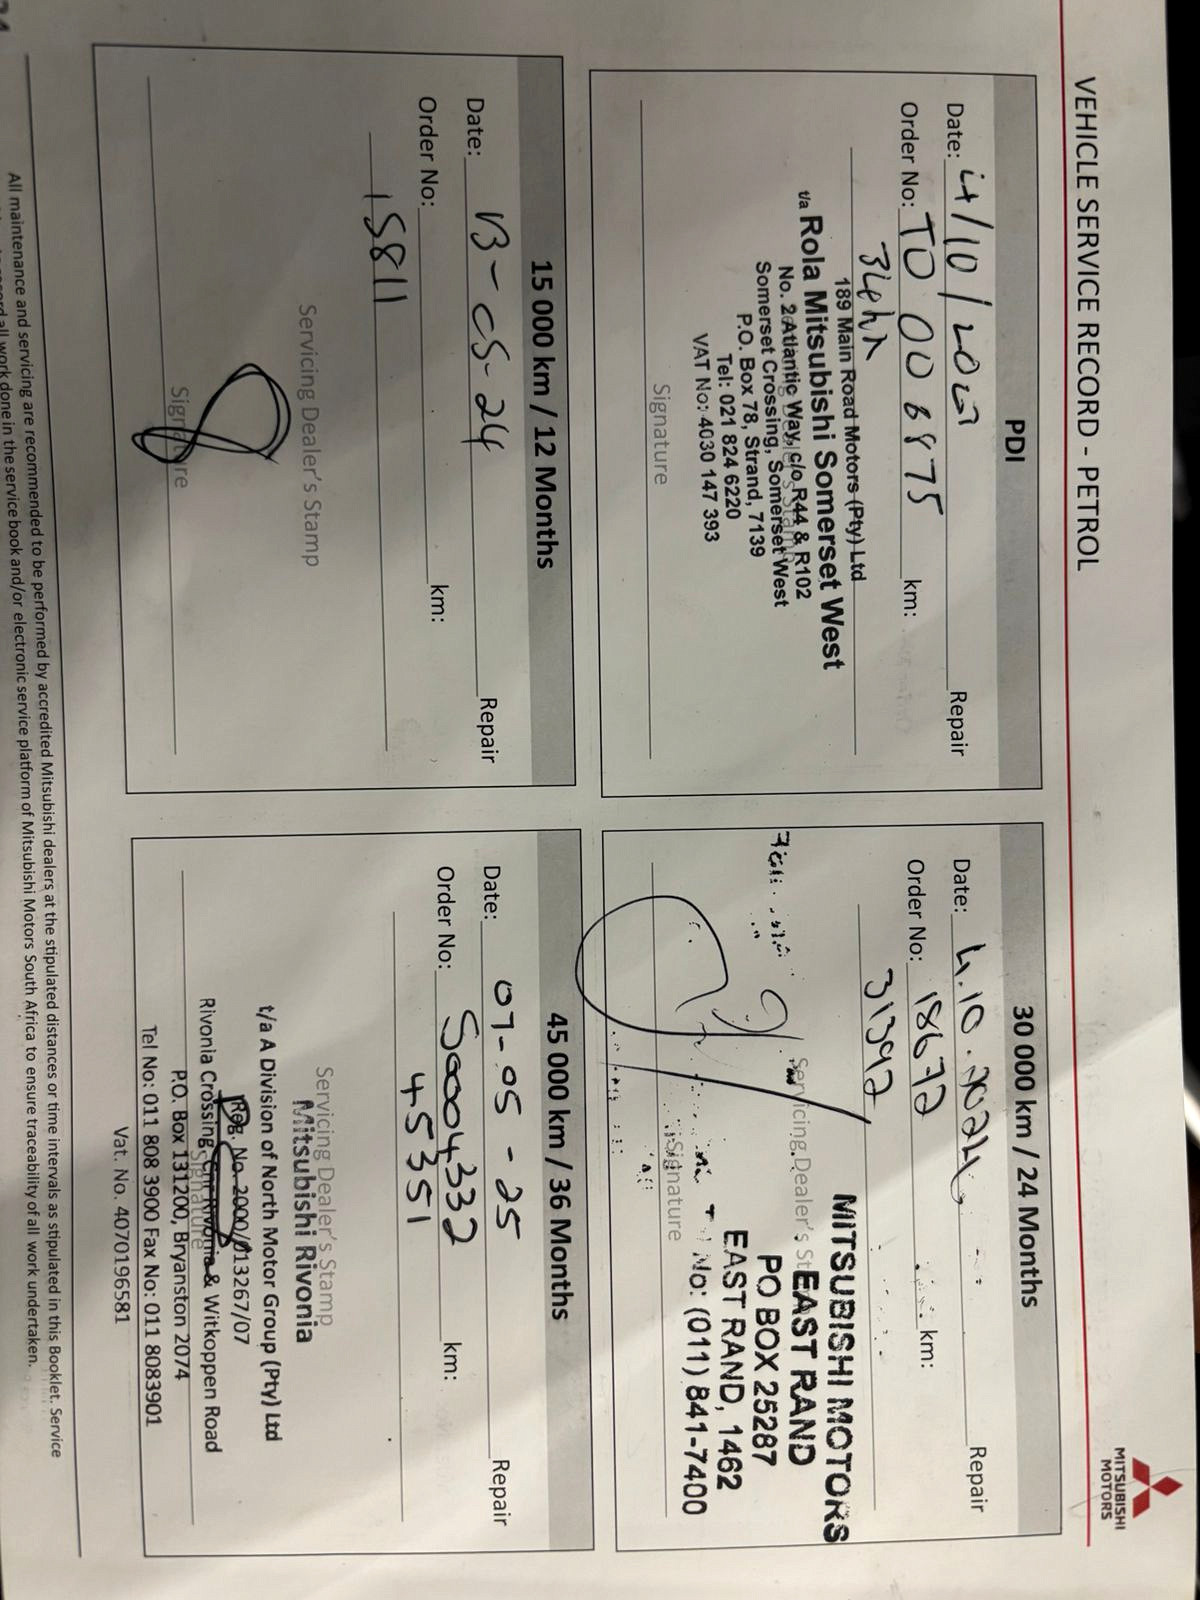 VEHICLE SERVICE RECORD - PETROL
MITSUBISHI
MOTORS
PDI
Date: /10/ Repair
Order No: TO 006875 km:
189 Main Road Motors (Pty) Ltd
t/a Rola Mitsubishi Somerset West
No. 2 Atlantic Way, c/o R44 & R102
Somerset Crossing, Somerset West
P.O. Box 78, Strand, 7139
Tel: 021 824 6220
VAT No: 4030 147 393
Signature
30 000 km / 24 Months
Date: 4.10.2024 Repair
Order No: 18672 km:
31392
Servicing Dealer's
MITSUBISHI MOTORS
EAST RAND
PO BOX 25287
EAST RAND, 1462
No: (011) 841-7400
Signature
15 000 km / 12 Months
Date: 13-05-24 Repair
Order No: km:
15811
Servicing Dealer's Stamp
Signature
45 000 km / 36 Months
Date: 07-05-25 Repair
Order No: S0004332 km:
45351
Servicing Dealer's Stamp
Mitsubishi Rivonia
t/a A Division of North Motor Group (Pty) Ltd
Reg. No. 2000/013267/07
Rivonia Crossing Cnr Rivonia & Witkoppen Road
Signature
P.O. Box 131200, Bryanston 2074
Tel No: 011 808 3900 Fax No: 011 8083901
Vat. No. 4070196581
All maintenance and servicing are recommended to be performed by accredited Mitsubishi dealers at the stipulated distances or time intervals as stipulated in this Booklet. Service
all work done in the service book and/or electronic service platform of Mitsubishi Motors South Africa to ensure traceability of all work undertaken.